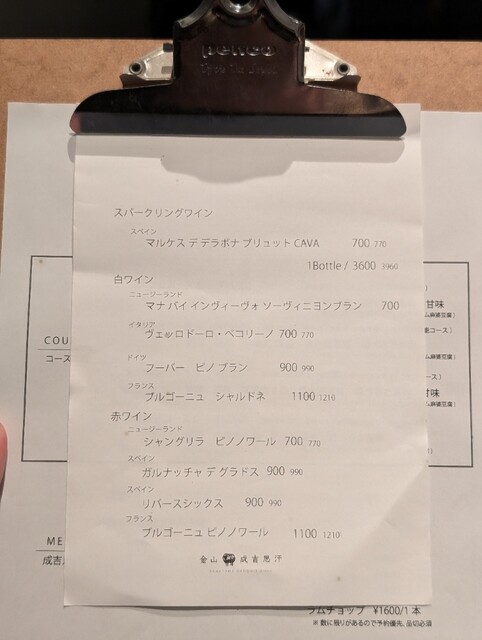 penco
スパークリングワイン
スペイン
マルケス デ デラボナ ブリュット CAVA 700 770
1Bottle / 3600 3960
白ワイン
ニュージーランド
マナ バイ インヴィーヴォ ソーヴィニヨンブラン 700
イタリア
ヴェッロドーロ・ペコリーノ 700 770
ドイツ
フーバー ピノ ブラン 900 990
フランス
ブルゴーニュ シャルドネ 1100 1210
赤ワイン
ニュージーランド
シャングリラ ピノノワール 700 770
スペイン
ガルナッチャ デ グラドス 900 990
スペイン
リバースシックス 900 990
フランス
ブルゴーニュ ピノノワール 1100 1210
金山 成吉思汗
COU
コース
甘味
ム麻婆豆腐)
コース)
ム麻婆豆腐)
ース)
甘味
ム麻婆豆腐)
ME
成吉
ラムチョップ ¥1600/1本
※数に限りがあるので予約優先、品切必須